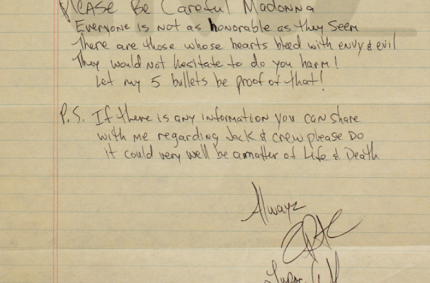 PLEASE BE CAREFUL MADONNA
Everyone is not as honorable as they seem
There are those whose hearts bleed with envy & evil
They would not hesitate to do you harm!
Let my 5 bullets be proof of that!
P.S. If there is any information you can share
with me regarding Jack & crew please DO
it could very well be a matter of Life & Death
Always